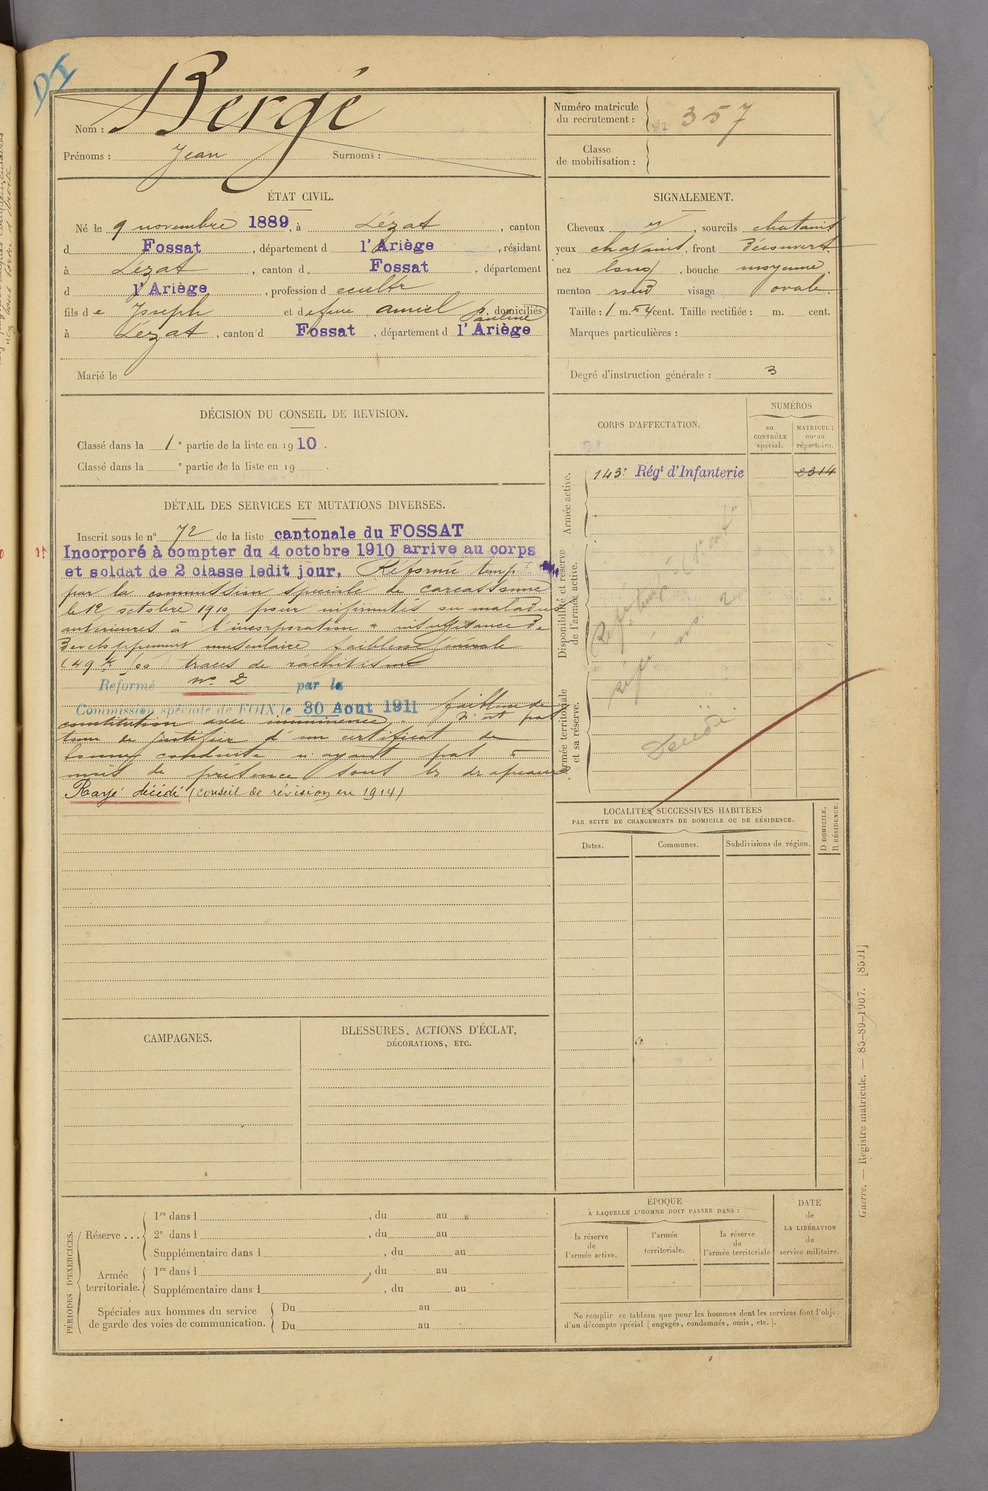 DI
Nom : Bergé
Prénoms : Jean Surnoms :
Numéro matricule du recrutement : 357
Classe de mobilisation :
ÉTAT CIVIL.
Né le 9 novembre 1889, à Lézat, canton
d Fossat, département d l'Ariège, résidant
à Lezat, canton d Fossat, département
d l'Ariège, profession d cultr
fils de Joseph et de feue Amiel Pauline, domiciliés
à Lezat, canton d Fossat, département d l'Ariège
Marié le
SIGNALEMENT.
Cheveux , sourcils chatains
yeux chatains, front Découvert
nez long, bouche moyenne,
menton rond visage ovale
Taille : 1 m. 54 cent. Taille rectifiée : m. cent.
Marques particulières :
Degré d'instruction générale : 3
DÉCISION DU CONSEIL DE REVISION.
Classé dans la 1e partie de la liste en 1910.
Classé dans la e partie de la liste en 19 .
DÉTAIL DES SERVICES ET MUTATIONS DIVERSES.
Inscrit sous le n° 72 de la liste cantonale du FOSSAT
Incorporé à compter du 4 octobre 1910 arrive au corps
et soldat de 2 classe ledit jour. Réformé temp
par la commission spéciale de Carcassonne
le 12 octobre 1910 pour infirmités ou maladies
antérieures à l'incorporation « insuffisance de
Développement musculaire faiblesse générale
(49 traces de rachitisme
Reformé n° 2 par la
Commission spéciale de FOIX le 30 Aout 1911 faiblesse de
constitution avec imminence. N'est pas
tenu de justifier d'un certificat de
bonne conduite n'ayant pas
mois de présence sous les drapeaux
Rayé décédé (conseil de révision en 1914)
CORPS D'AFFECTATION.
NUMÉROS
au CONTRÔLE spécial.
MATRICULE ou au répertoire.
Armée active.
143e Régt d'Infanterie 2314
Disponibilité et réserve de l'armée active.
Armée territoriale et sa réserve.
Décédé
LOCALITÉS SUCCESSIVES HABITÉES
PAR SUITE DE CHANGEMENTS DE DOMICILE OU DE RÉSIDENCE.
Dates. Communes. Subdivisions de région.
D DOMICILE, R RÉSIDENCE.
CAMPAGNES.
BLESSURES, ACTIONS D'ÉCLAT,
DÉCORATIONS, ETC.
PÉRIODES D'EXERCICES.
Réserve ...
1re dans l , du au
2e dans l , du au
Supplémentaire dans l , du au
Armée territoriale.
1re dans l , du au
Supplémentaire dans l , du au
Spéciales aux hommes du service
de garde des voies de communication.
Du au
Du au
ÉPOQUE
À LAQUELLE L'HOMME DOIT PASSER DANS :
la réserve de l'armée active.
l'armée territoriale.
la réserve de l'armée territoriale
DATE de LA LIBÉRATION du service militaire.
Ne remplir ce tableau que pour les hommes dont les services font l'objet
d'un décompte spécial (engagés, condamnés, omis, etc.).
Guerre. — Registre matricule. — 85-89-1907. [8501]